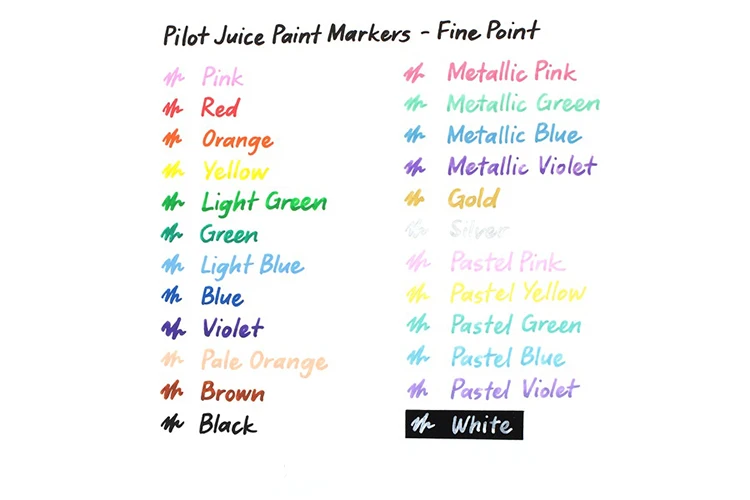 Pilot Juice Paint Markers - Fine Point
Pink
Red
Orange
Yellow
Light Green
Green
Light Blue
Blue
Violet
Pale Orange
Brown
Black
Metallic Pink
Metallic Green
Metallic Blue
Metallic Violet
Gold
Silver
Pastel Pink
Pastel Yellow
Pastel Green
Pastel Blue
Pastel Violet
White